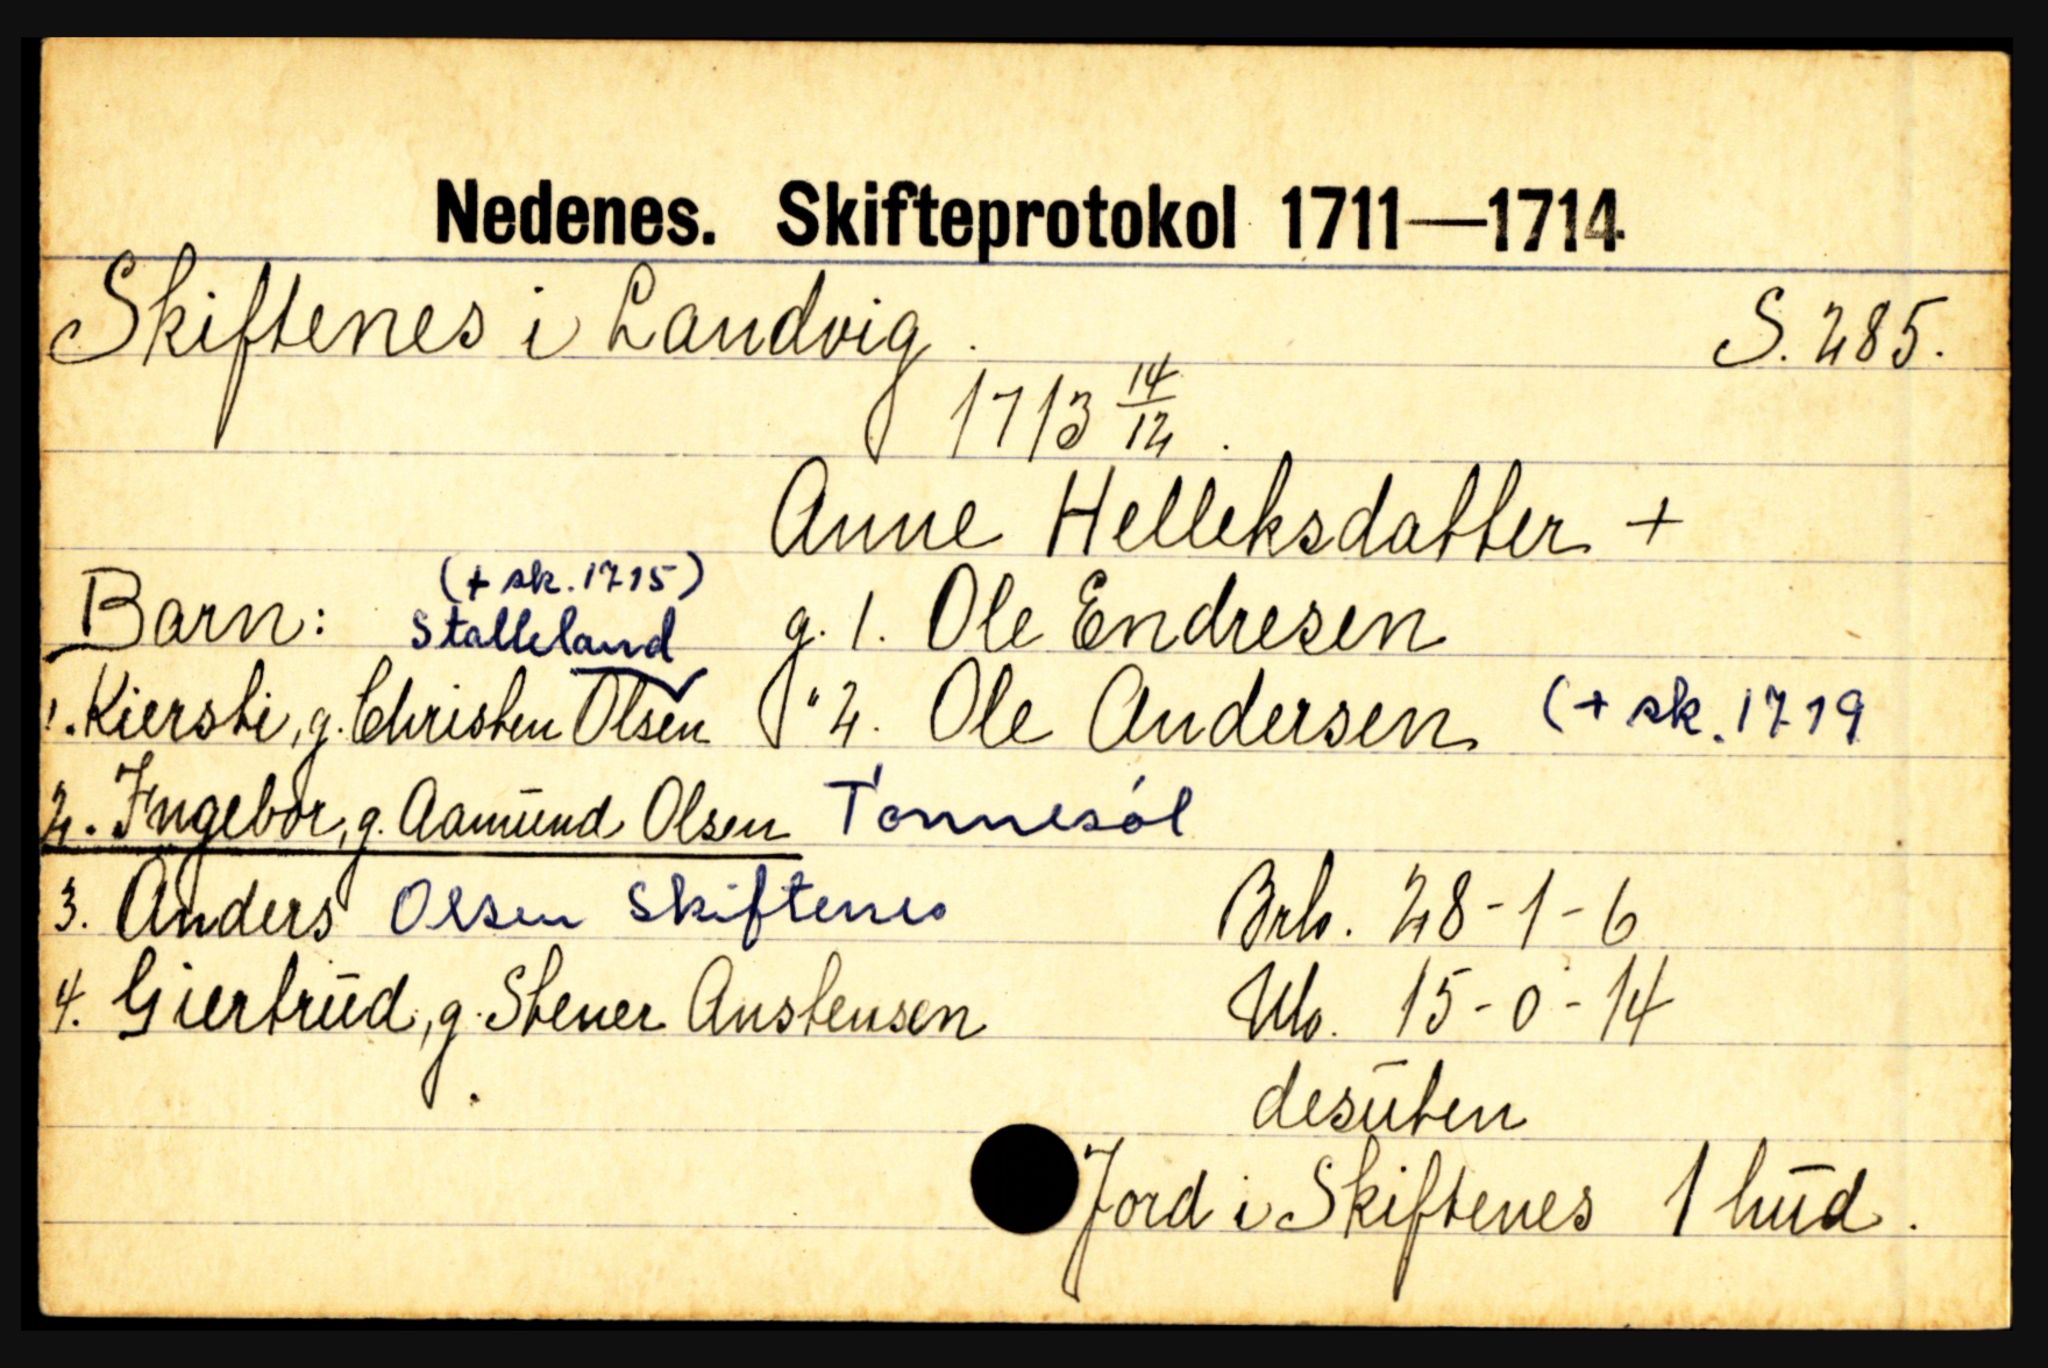 Nedenes. Skifteprotokol 1711—1714
Skiftenes i Landvig. S. 285.
1713 14/12.
Anne Helleksdatter +
Barn: (+ sk. 1715) Stalleland g. 1. Ole Endresen
1. Kiersti, g. Christen Olsen " 2. Ole Andersen (+ sk. 1719
2. Ingebor, g. Aamund Olsen Tønnesøl
3. Anders Olsen Skiftenes Brb. 28-1-6
4. Giertrud, g. Stener Anstensen Ub. 15-0-14
desuten
Jord i Skiftenes 1 hud.